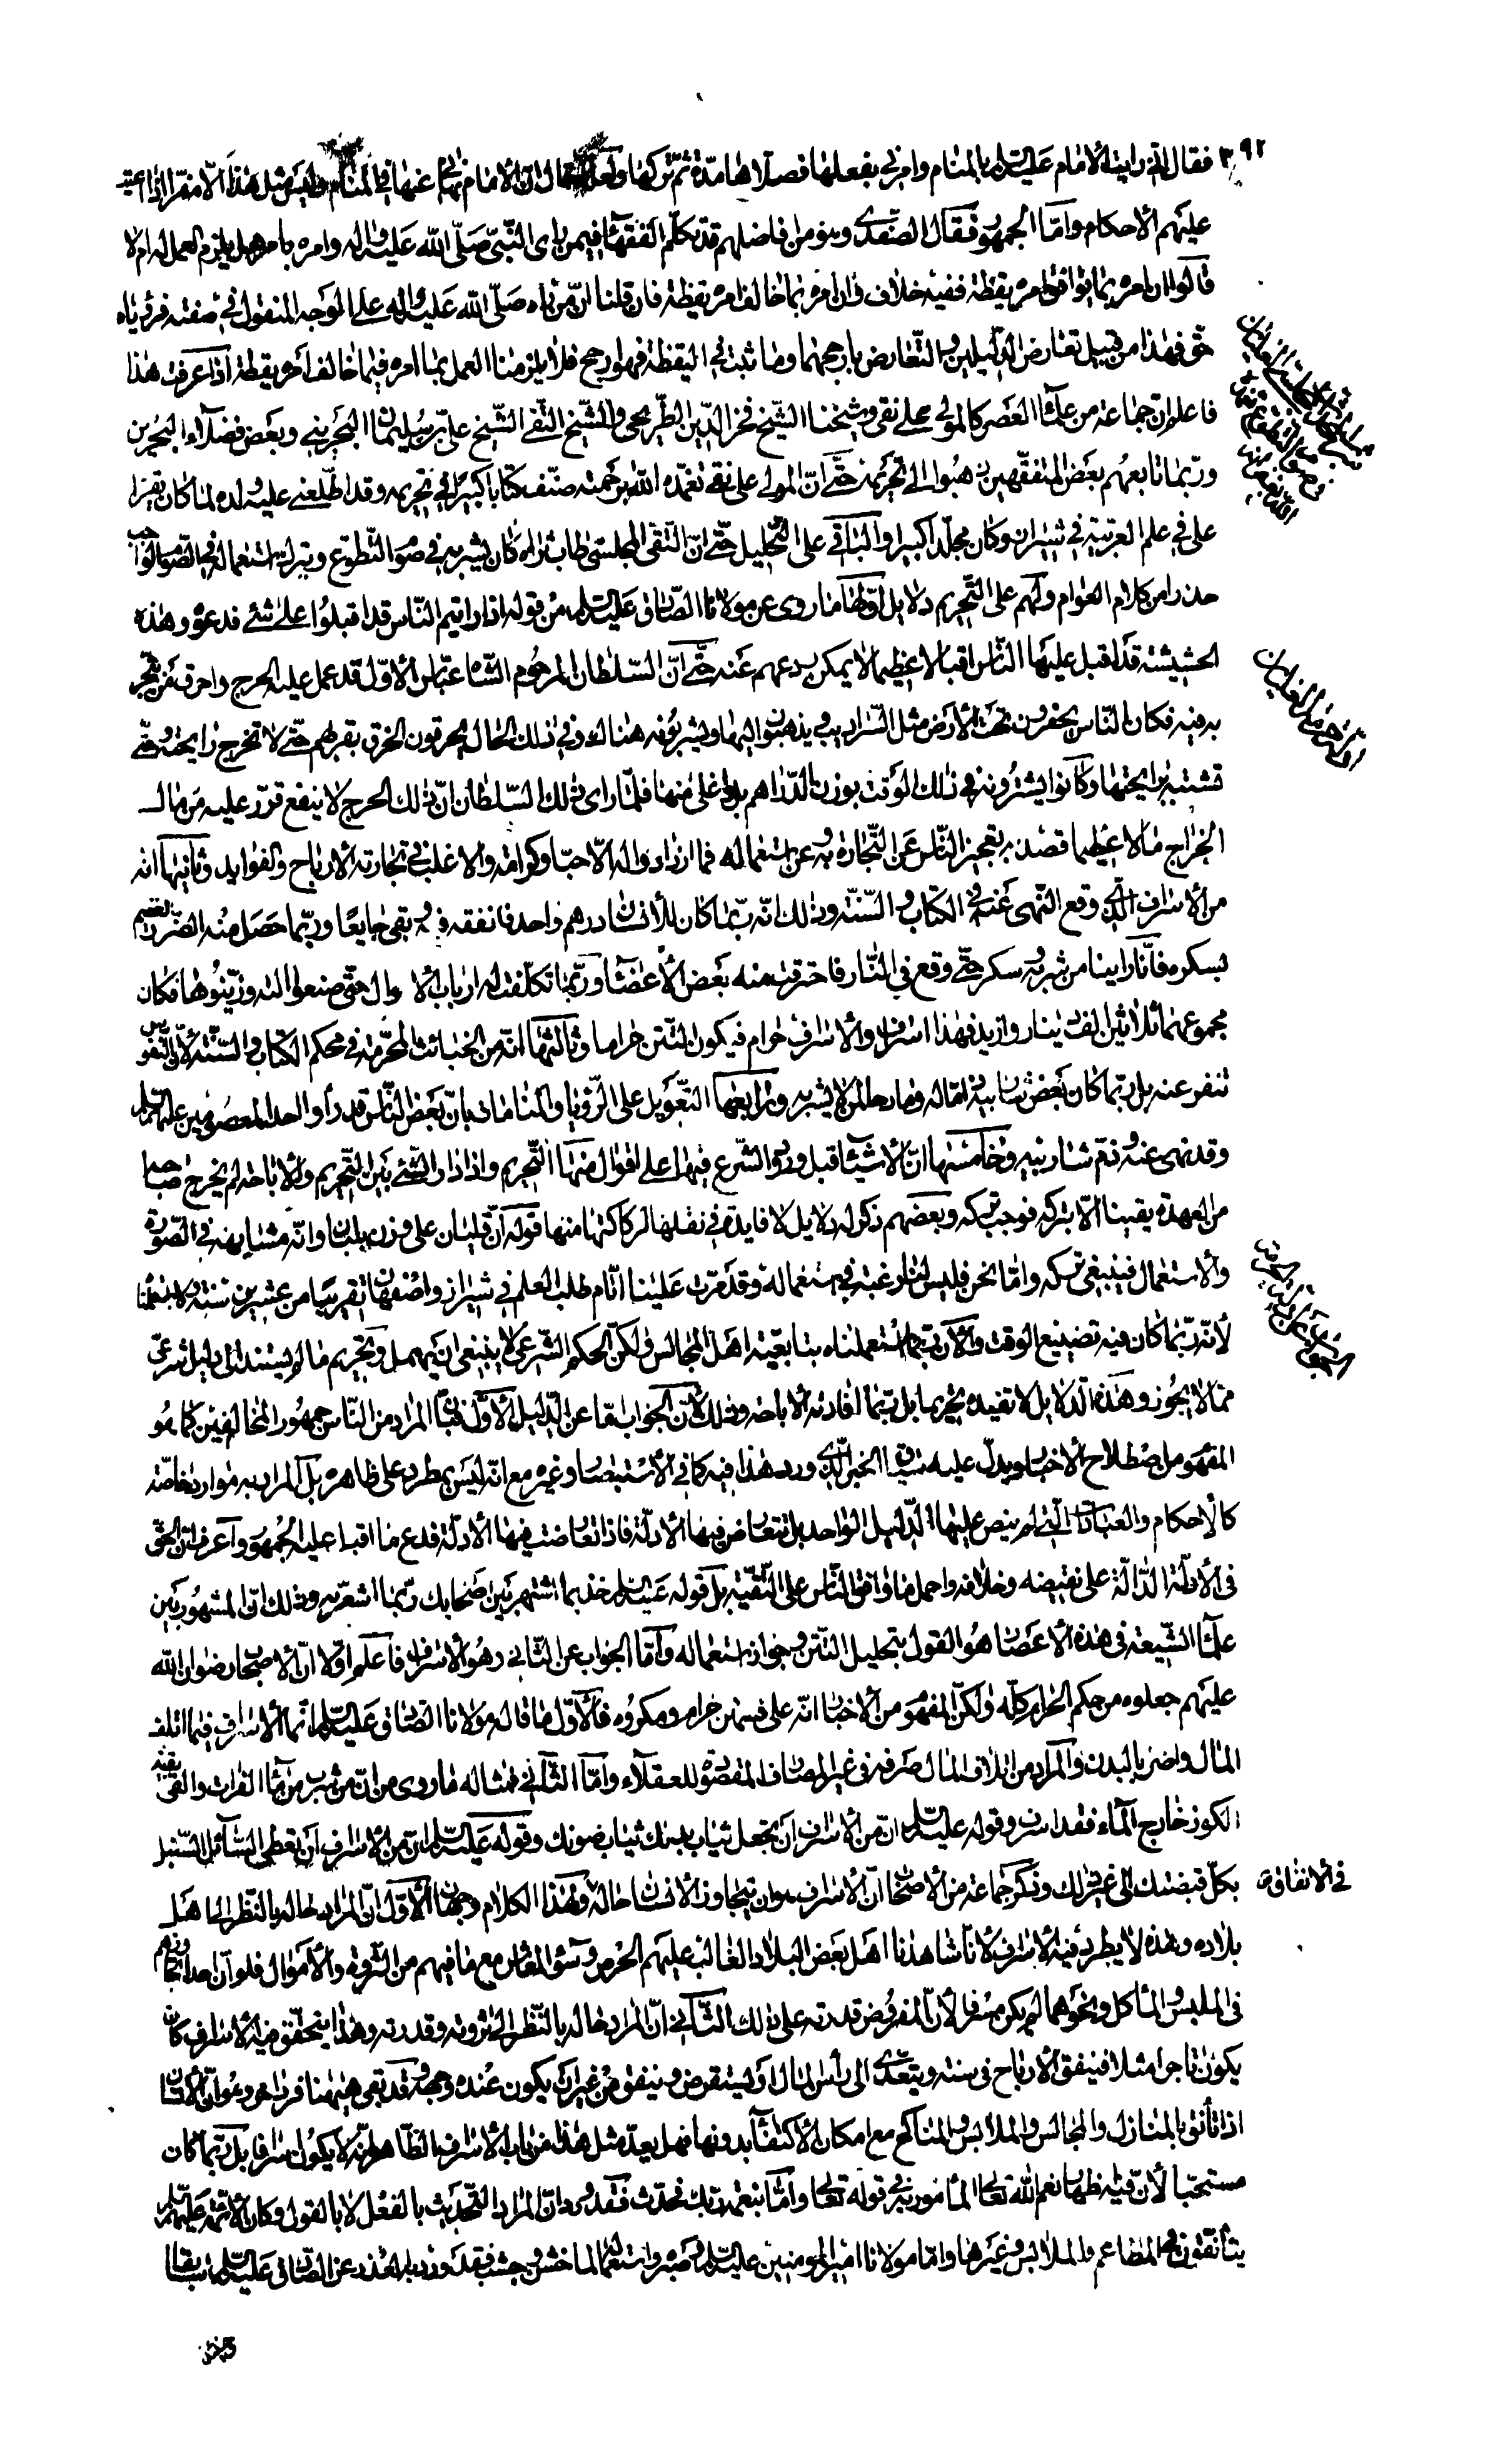 ٣٩٢ فقال انّي رايت الامام عليه السلام بالمنام وامرني بفعلها فصلاها مدّة ثمّ تركها وقال انّ الامام نهاني عنها في المنام وليس مثل هذا الا مفترا
عليهم الاحكام وامّا الجمهور فقال الصفدي وهو من افاضلهم قد تكلّم الفقهآء فيمن راى النّبيّ صلّى الله عليه واله وامره بامر هل يلزم العمل له ام لا
قالوا ان امره بما يوافق امره يقظة ففيه خلاف وان امره بما خالف امره يقظة فان قلنا انّ من رآه صلّى الله عليه واله على الوجه المنقول في صفته فرؤياه
حق فهذا من قبيل تعارض الدّليلين والتّعارض بارجحهما وما ثبت في اليقظة فهو ارجح فلا يلزمنا العمل بما امره فيما خالف امره يقظة اذا عرفت هذا
فاعلم انّ جماعة من علمآء العصر كالمولى علي نقي وشيخنا الشّيخ فخر الدّين الطّريحي والشّيخ التّقي الشّيخ علي بن سليمان البحريني وبعض فضلآء البحرين
وربّما تابعهم بعض المتفقّهين ذهبوا الى تحريمه حتّى انّ المولى علي نقي تغمّده الله برحمته صنّف كتابا كبيرا في تحريمه وقد اطّلعني عليه ولده لمّا كان يقرا
عليّ في علم العربيّة في شيراز وكان مجلّدا كبيرا والباقي على التّحليل حتّى انّ التّقي المجلسي طاب ثراه كان يشربه في صوم التّطوّع ويترك استعماله في الصّوم الواجب
حذرا من كلام العوام ولهم على التّحريم دلايل اوّلها ما روى عن مولانا الصّادق عليه السلام من قوله اذا رايتم النّاس قد اقبلوا على شئ فدعوه وهذه
الحشيشة قد اقبل عليها النّاس اقبالا عظيما لا يمكن ردعهم عنه حتّى انّ السّلطان المرحوم الشّاه عبّاس الاوّل قد عمل عليه الحرج واحرق من يتّجر
به فيه فكان النّاس يحفرون تحت الارض مثل السّراديب ويذهبون اليها ويشربونه هناك وفي ذلك الحال يحرقون الخرق بقربهم حتّى لا تخرج رايحته وحتّى
تشتبه برايحتها وكانوا يشترونه في ذلك الوقت بوزن الدّراهم بل واغلى منها فلمّا راى ذلك السّلطان انّ ذلك الحرج لا ينفع قرّر عليه من مال
الخراج مالا عظيما قصد به تعجيز النّاس عن التّجارة به وعن استعماله فما ازدادوا له الّا حبّا وكرامة والاغلب في تجارته الارباح والفوايد وثانيها انّه
من الاسراف الّذي وقع النّهى عنه في الكتاب والسّنّة وذلك انّه ربّما كان للانسان درهم واحد فانفقه فيه وبقى جايعا وربّما حصل منه الضّرر العظيم
بسكره فانّا راينا من شربه وسكر حتّى وقع في النّار فاحترقت منه بعض الاعضآء وربّما تكلّفت له ارباب الاموال حتّى صنعوا الته وزيّنوها فكان
مجموعهما ثلاثين الف دينار وازيد فهذا اسراف والاسراف حرام فيكون التتن حراما وثالثها انّه من الخبائث المحرّمة في محكم الكتاب والسّنّة لانّ النّفوس
تنفر عنه بل ربّما كان بعض شاربيه هذا حاله فما حال من لا يشربه ورابعها التّعويل على الرّؤيا والمنامات بانّ بعض النّاس قد رأوا احد المعصومين عليهم السلام
وقد نهى عنه وذمّ شاربيه وخامسها انّ الاشيآء قبل ورود الشّرع فيها على اقوال منها التّحريم واذا دار الشّئ بين التّحريم والاباحة لم يخرج صاحبها
من العهدة يقينا الّا بتركه فوجب تركه وبعضهم ذكر له دلايل لا فايدة في نقلها لركاكتها منها قوله انّ قليان على وزن وانّه مشابهه في الصّورة
والاستعمال فينبغي تركه وامّا نحن فليس لنا رغبة في استعماله وقد مرّت علينا ايّام طلب العلم في شيراز واصفهان تقريبا من عشرين سنة ولا استعملناه
لانّه ربّما كان فيه تضييع الوقت والآن ربّما استعملناه بتابعيّة اهل المجالس ولكنّ الحكم الشّرعي لا ينبغي ان يهمل وتحريم ما لم يستند الى دليل شرعي
ممّا لا يجوز وهذه الدّلايل لا تفيده تحريما بل ربّما افادته الاباحة وذلك لانّ الجواب امّا عن الدّليل الاوّل فبانّ المراد من النّاس جمهور المخالفين كما هو
المفهوم من اصطلاح الاخبار ويدلّ عليه سياق الخبر الّذي ورد هذا فيه كما في الاستبصار وغيره مع انّه ليس بمطرد على ظاهره بل المراد به موارد خاصّة
كالاحكام والعبادات الّتي لم ينص عليها الدّليل الواحد بل تتعارض فيها الادلّة فاذا تعارضت فيها الادلّة فدع ما اقبل عليه الجمهور واعرف انّ الحقّ
في الادلّة الدّالّة على نقيضه وخلافه واحمل ما وافق النّاس على التّقيّة بل قوله عليه السلام خذ بما اشتهر بين اصحابك ربّما اشعر به وذلك انّ المشهور بين
علمآء الشّيعة في هذه الاعصار هو القول بتحليل التتن وجواز استعماله وامّا الجواب عن الثّاني وهو الاسراف فاعلم اوّلا انّ الاصحاب رضوان الله
عليهم جعلوه من حكم الحرام كلّه ولكنّ المفهوم من الاخبار انّه على قسمين حرام ومكروه فالاوّل ما قاله مولانا الصّادق عليه السلام انّما الاسراف فيما اتلف
المال واضر بالبدن والمراد من اتلاف المال صرفه في غير المصارف المقصودة للعقلآء وامّا الثّاني فمثاله ما روى من انّ من شرب من مآء الفرات والقى بقيّة
الكوز خارج المآء فقد اسرف وقوله عليه السلام انّ من الاسراف ان تجعل ثياب بدنك ثياب صونك وقوله عليه السلام انّ من الاسراف ان تعطي السّائل السّنبل
بكلّ قبضتك الى غير ذلك وذكر جماعة من الاصحاب انّ الاسراف هو ان يتجاوز الانسان حاله في الانفاق ولهذا الكلام وجهان الاوّل انّ المراد حاله بالنّظر الى اهل
بلاده وهذه لا يطرد فيه الاسراف لانّا شاهدنا اهل بعض البلاد الغالب عليهم الحرص وسوء المعاش مع ما فيهم من الثّروة والاموال فلو انّ احدا تجاوزهم
في الملبس والمأكل ونحوهما لم يكن مسرفا لانّ المفروض قدرته على ذلك الثّاني انّ المراد حاله بالنّظر الى ثروته وقدرته وهذا يتحقّق فيه الاسراف كان
يكون تاجرا مثلا فينفق الارباح في سنته ويتعدّى الى رأس المال او يستقرض وينفق من غير ان يكون عنده وجهه وقد بقى هيهنا فرد اخر وهو انّ الانسان
اذا تأنق بالمنازل والمجالس والملابس والمناكح مع امكان الاكتفآء بدونها فهل يعدّ مثل هذا من باب الاسراف الظّاهر انّه لا يكون اسرافا بل ربّما كان
مستحبّا لانّ فيه اظهار نعم الله تعالى المأمور به في قوله تعالى وامّا بنعمة ربّك فحدّث فقد ورد انّ المراد التّحديث بالفعل لا بالقول وكان الائمّة عليهم السلام
يتأنّقون في المطاعم والملابس وغيرها وامّا مولانا امير المؤمنين عليه السلام وصبره واستعماله لما خشن وجشب فقد ورد به العذر عن الصّادق عليه السلام